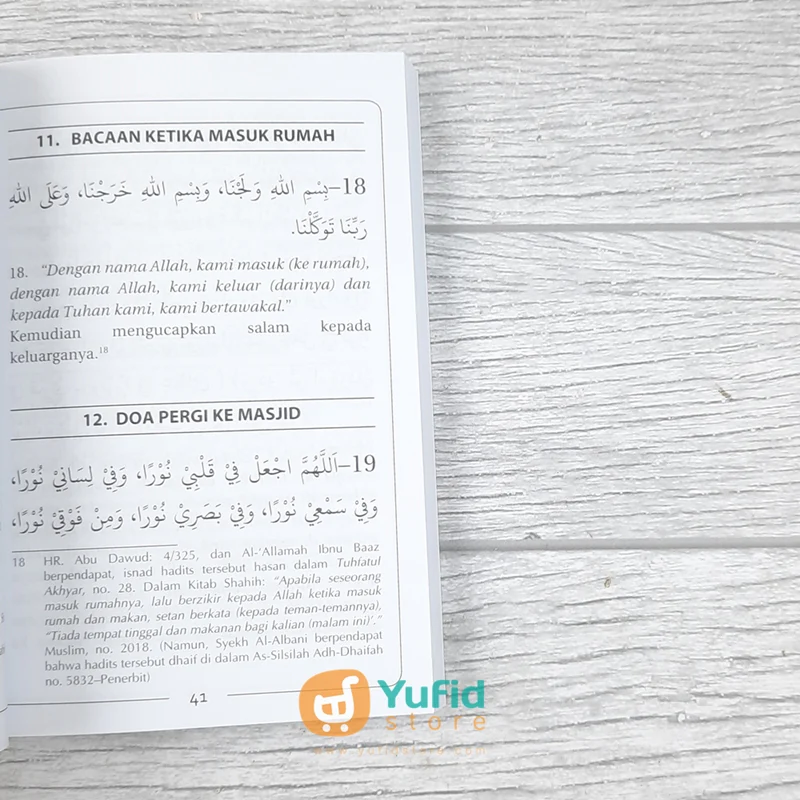 11. BACAAN KETIKA MASUK RUMAH
18–بِسْمِ اللهِ وَلَجْنَا، وَبِسْمِ اللهِ خَرَجْنَا، وَعَلَى اللهِ
رَبِّنَا تَوَكَّلْنَا.
18. “Dengan nama Allah, kami masuk (ke rumah),
dengan nama Allah, kami keluar (darinya) dan
kepada Tuhan kami, kami bertawakal.”
Kemudian mengucapkan salam kepada
keluarganya.18
12. DOA PERGI KE MASJID
19–اَللَّهُمَّ اجْعَلْ فِيْ قَلْبِيْ نُوْرًا، وَفِيْ لِسَانِيْ نُوْرًا،
وَفِيْ سَمْعِيْ نُوْرًا، وَفِيْ بَصَرِيْ نُوْرًا، وَمِنْ فَوْقِيْ نُوْرًا،
18 HR. Abu Dawud: 4/325, dan Al-‘Allamah Ibnu Baaz
berpendapat, isnad hadits tersebut hasan dalam Tuhfatul
Akhyar, no. 28. Dalam Kitab Shahih: “Apabila seseorang
masuk rumahnya, lalu berzikir kepada Allah ketika masuk
rumah dan makan, setan berkata (kepada teman-temannya),
“Tiada tempat tinggal dan makanan bagi kalian (malam ini)’.”
Muslim, no. 2018. (Namun, Syekh Al-Albani berpendapat
bahwa hadits tersebut dhaif di dalam As-Silsilah Adh-Dhaifah
no. 5832–Penerbit)
41
Yufid
store
www.yufidstore.com